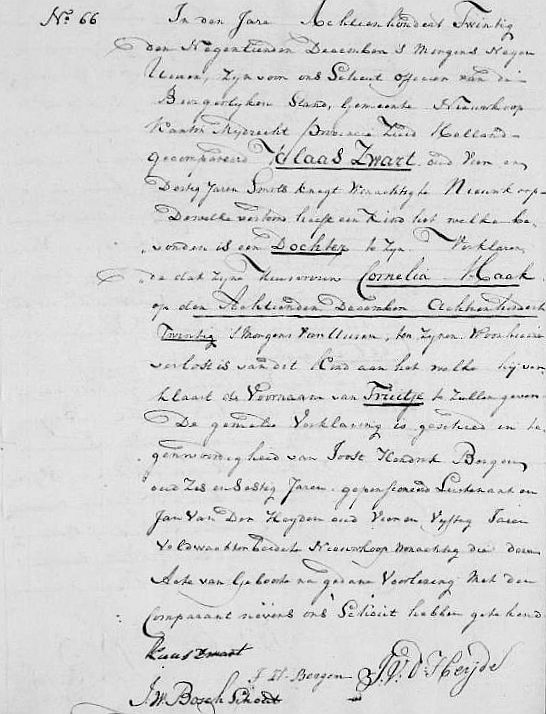 No. 66 In den Jare Achtienhondert Twintig
den Negentienden December s Morgens Negen
Uuren, Zyn voor ons Schout Officier van de
Burgerlyken Stand, Gemeente Nieuwkoop
Kanton Mydrecht provincie Zuid Holland
gecompareerd Klaas Zwart oud Vier en
Dertig Jaren Smits knegt Wonachtig te Nieuwkoop
Dewelke vertoon heeft een Kind het welke be-
vonden is een Dochter te Zyn Verklaren
de dat Zyne Huisvrouw Cornelia Haak
op den Achtienden December Achtienhondert
Twintig s Morgens Uuren, ten Zynen Woonhuise
verlost is van dit Kind aan het welke hij ver-
klaart de Voornaam van Truitje te Zullen geven
De gemelde Verklaring is geschied in te-
genwoordigheid van Joost Hendrik Borgen
oud Zes en Sestig Jaren gepensioneerd Luitenant en
Jan Van Der Heyden oud Vier en Vyftig Jaren
Veldwachter beide te Nieuwkoop Wonachtig die deese
Acte van Geboorte na gedane Voorlezing Met den
Comparant nevens ons Schout hebben getekend
Klaas Zwart
J H Borgen J. V. D. Heijde
J. W. Bosch Schout